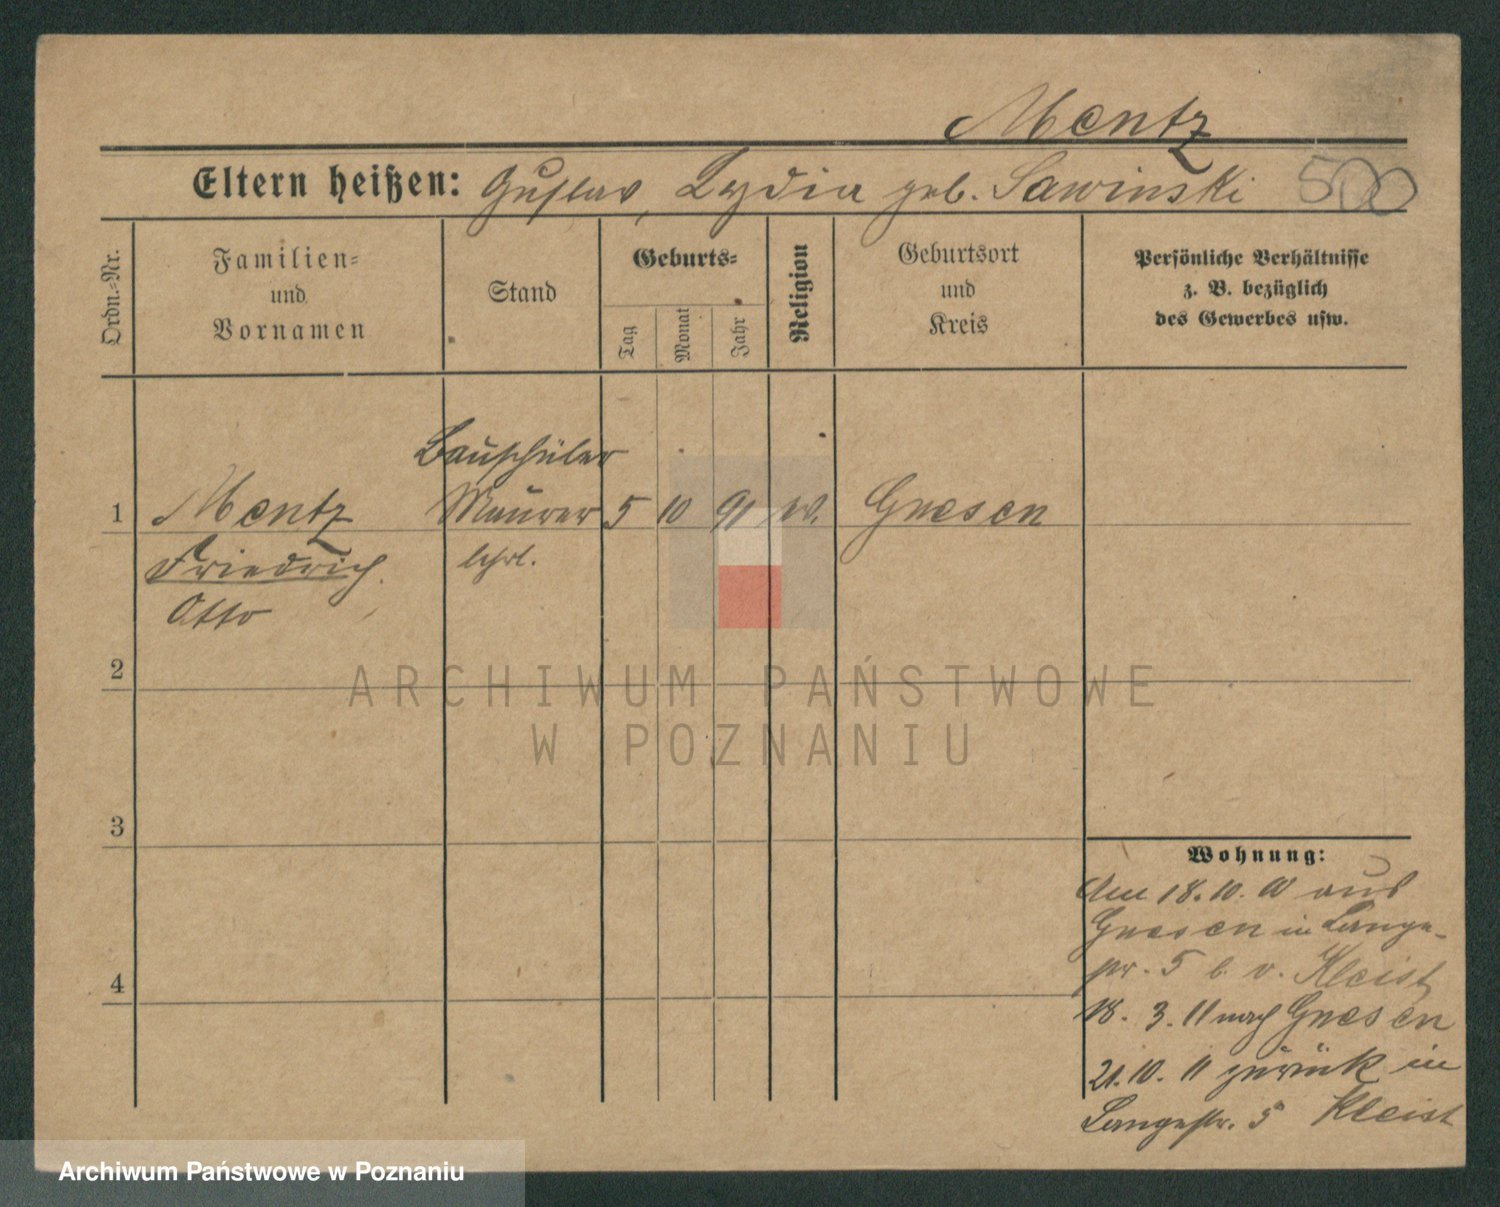 Mentz
Eltern heißen: Gustav, Lydia geb. Sawinski 500
Ordn.-Nr.
Familien-
und
Vornamen
Stand
Geburts-
Tag
Monat
Jahr
Religion
Geburtsort
und
Kreis
Persönliche Verhältnisse
z. B. bezüglich
des Gewerbes usw.
Bauschüler
1 Mentz Maurer 5 10 91 Gnesen
Friedrich lehrl.
Otto
2
ARCHIWUM PAŃSTWOWE
W POZNANIU
3
Wohnung:
Am 18. 10. 10 aus
Gnesen in Lange-
str. 5 b. v. Kleist
18. 3. 11 nach Gnesen
21. 10. 11 zurück in
Langestr. 5 Kleist
4
Archiwum Państwowe w Poznaniu